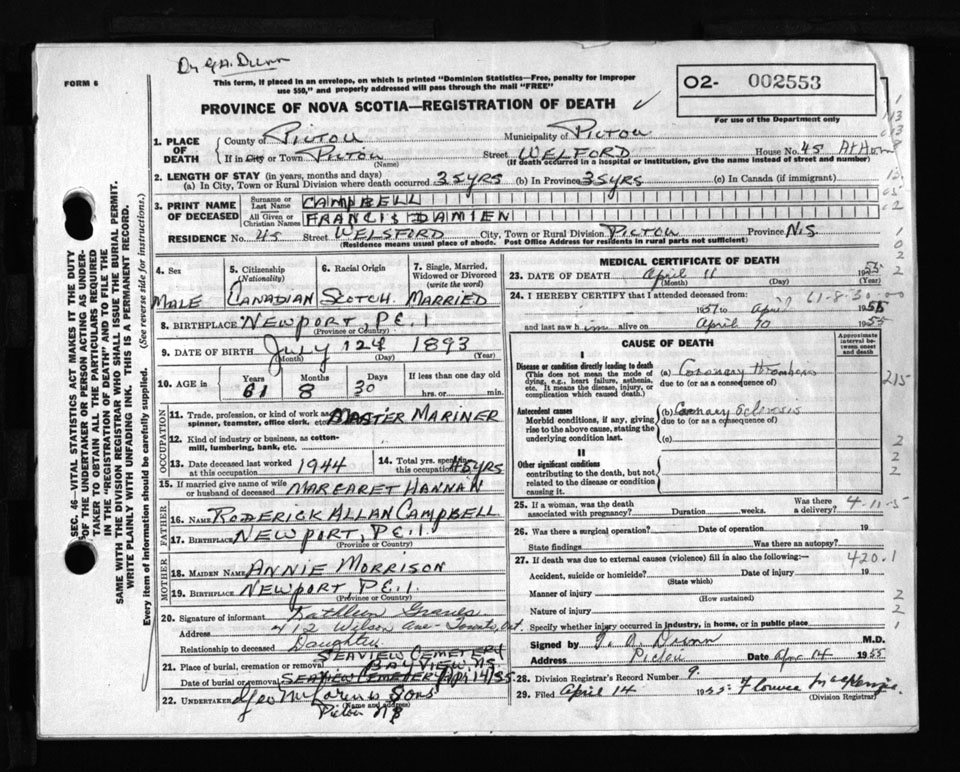 Dr G.A. Dunn
FORM 6
This form, if placed in an envelope, on which is printed "Dominion Statistics—Free, penalty for improper
use $50," and properly addressed will pass through the mail "FREE"
O2- 002553
For use of the Department only
PROVINCE OF NOVA SCOTIA—REGISTRATION OF DEATH
1. PLACE OF DEATH
County of Pictou Municipality of Pictou
If in City or Town Pictou (Name) Street WELFORD House No. 45 At Home
(If death occurred in a hospital or institution, give the name instead of street and number)
2. LENGTH OF STAY (in years, months and days)
(a) In City, Town or Rural Division where death occurred 35 yrs (b) In Province 35 yrs (c) In Canada (if immigrant)
3. PRINT NAME OF DECEASED
Surname or Last Name CAMPBELL
All Given or Christian Names FRANCIS DAMIEN
RESIDENCE No. 45 Street WELSFORD City, Town or Rural Division PICTOU Province N.S.
(Residence means usual place of abode. Post Office Address for residents in rural parts not sufficient)
4. Sex
MALE
5. Citizenship (Nationality)
CANADIAN
6. Racial Origin
SCOTCH
7. Single, Married, Widowed or Divorced (write the word)
MARRIED
8. BIRTHPLACE NEWPORT, P.E.I
(Province or Country)
9. DATE OF BIRTH July 12th 1893
(Month) (Day) (Year)
10. AGE in Years 61 Months 8 Days 30 If less than one day old hrs. or min.
OCCUPATION
11. Trade, profession, or kind of work as spinner, teamster, office clerk, etc. MASTER MARINER
12. Kind of industry or business, as cotton-mill, lumbering, bank, etc.
13. Date deceased last worked at this occupation 1944
14. Total yrs. spent in this occupation 45 yrs
15. If married give name of wife or husband of deceased MARGARET HANNAN
FATHER
16. NAME RODERICK ALLAN CAMPBELL
17. BIRTHPLACE NEWPORT, P.E.I.
(Province or Country)
MOTHER
18. MAIDEN NAME ANNIE MORRISON
19. BIRTHPLACE NEWPORT P.E.I.
(Province or Country)
20. Signature of informant Kathleen Graves
Address 12 Wilson Ave - Toronto, Ont.
Relationship to deceased Daughter
SEAVIEW CEMETERY
21. Place of burial, cremation or removal BAYVIEW, NS
Date of burial or removal SEAVIEW CEMETERY Apr 14/55
22. UNDERTAKER Geo McLaren & Sons
(Name and address)
Pictou NS
MEDICAL CERTIFICATE OF DEATH
23. DATE OF DEATH April 11 1955
(Month) (Day)
24. I HEREBY CERTIFY that I attended deceased from:
61-8-30
1951 to April 1955
and last saw him alive on April 10 1955
CAUSE OF DEATH
Approximate interval between onset and death
I
Disease or condition directly leading to death
(This does not mean the mode of dying, e.g., heart failure, asthenia, etc. It means the disease, injury, or complication which caused death.)
(a) Coronary thrombosis
due to (or as a consequence of)
Antecedent causes
Morbid conditions, if any, giving rise to the above cause, stating the underlying condition last.
(b) Coronary Sclerosis
due to (or as a consequence of)
(c)
II
Other significant conditions
contributing to the death, but not related to the disease or condition causing it.
25. If a woman, was the death associated with pregnancy? Duration weeks. Was there a delivery?
4-11-5
26. Was there a surgical operation? Date of operation 19
State findings Was there an autopsy?
27. If death was due to external causes (violence) fill in also the following:—
420.1
Accident, suicide or homicide? Date of injury 19
(State which)
Manner of injury
(How sustained)
Nature of injury
Specify whether injury occurred in industry, in home, or in public place
Signed by G. A. Dunn M.D.
Address Pictou Date Apr 14 1955
28. Division Registrar's Record Number 9.
29. Filed April 14 1955 Florence MacKenzie
(Division Registrar)
SEC. 46 VITAL STATISTICS ACT MAKES IT THE DUTY
OF THE UNDERTAKER OR PERSON ACTING AS UNDERTAKER TO OBTAIN ALL THE PARTICULARS REQUIRED
IN THE "REGISTRATION OF DEATH" AND TO FILE THE
SAME WITH THE DIVISION REGISTRAR WHO SHALL ISSUE THE BURIAL PERMIT.
WRITE PLAINLY WITH UNFADING INK. THIS IS A PERMANENT RECORD.
Every item of information should be carefully supplied. (See reverse side for instructions.)